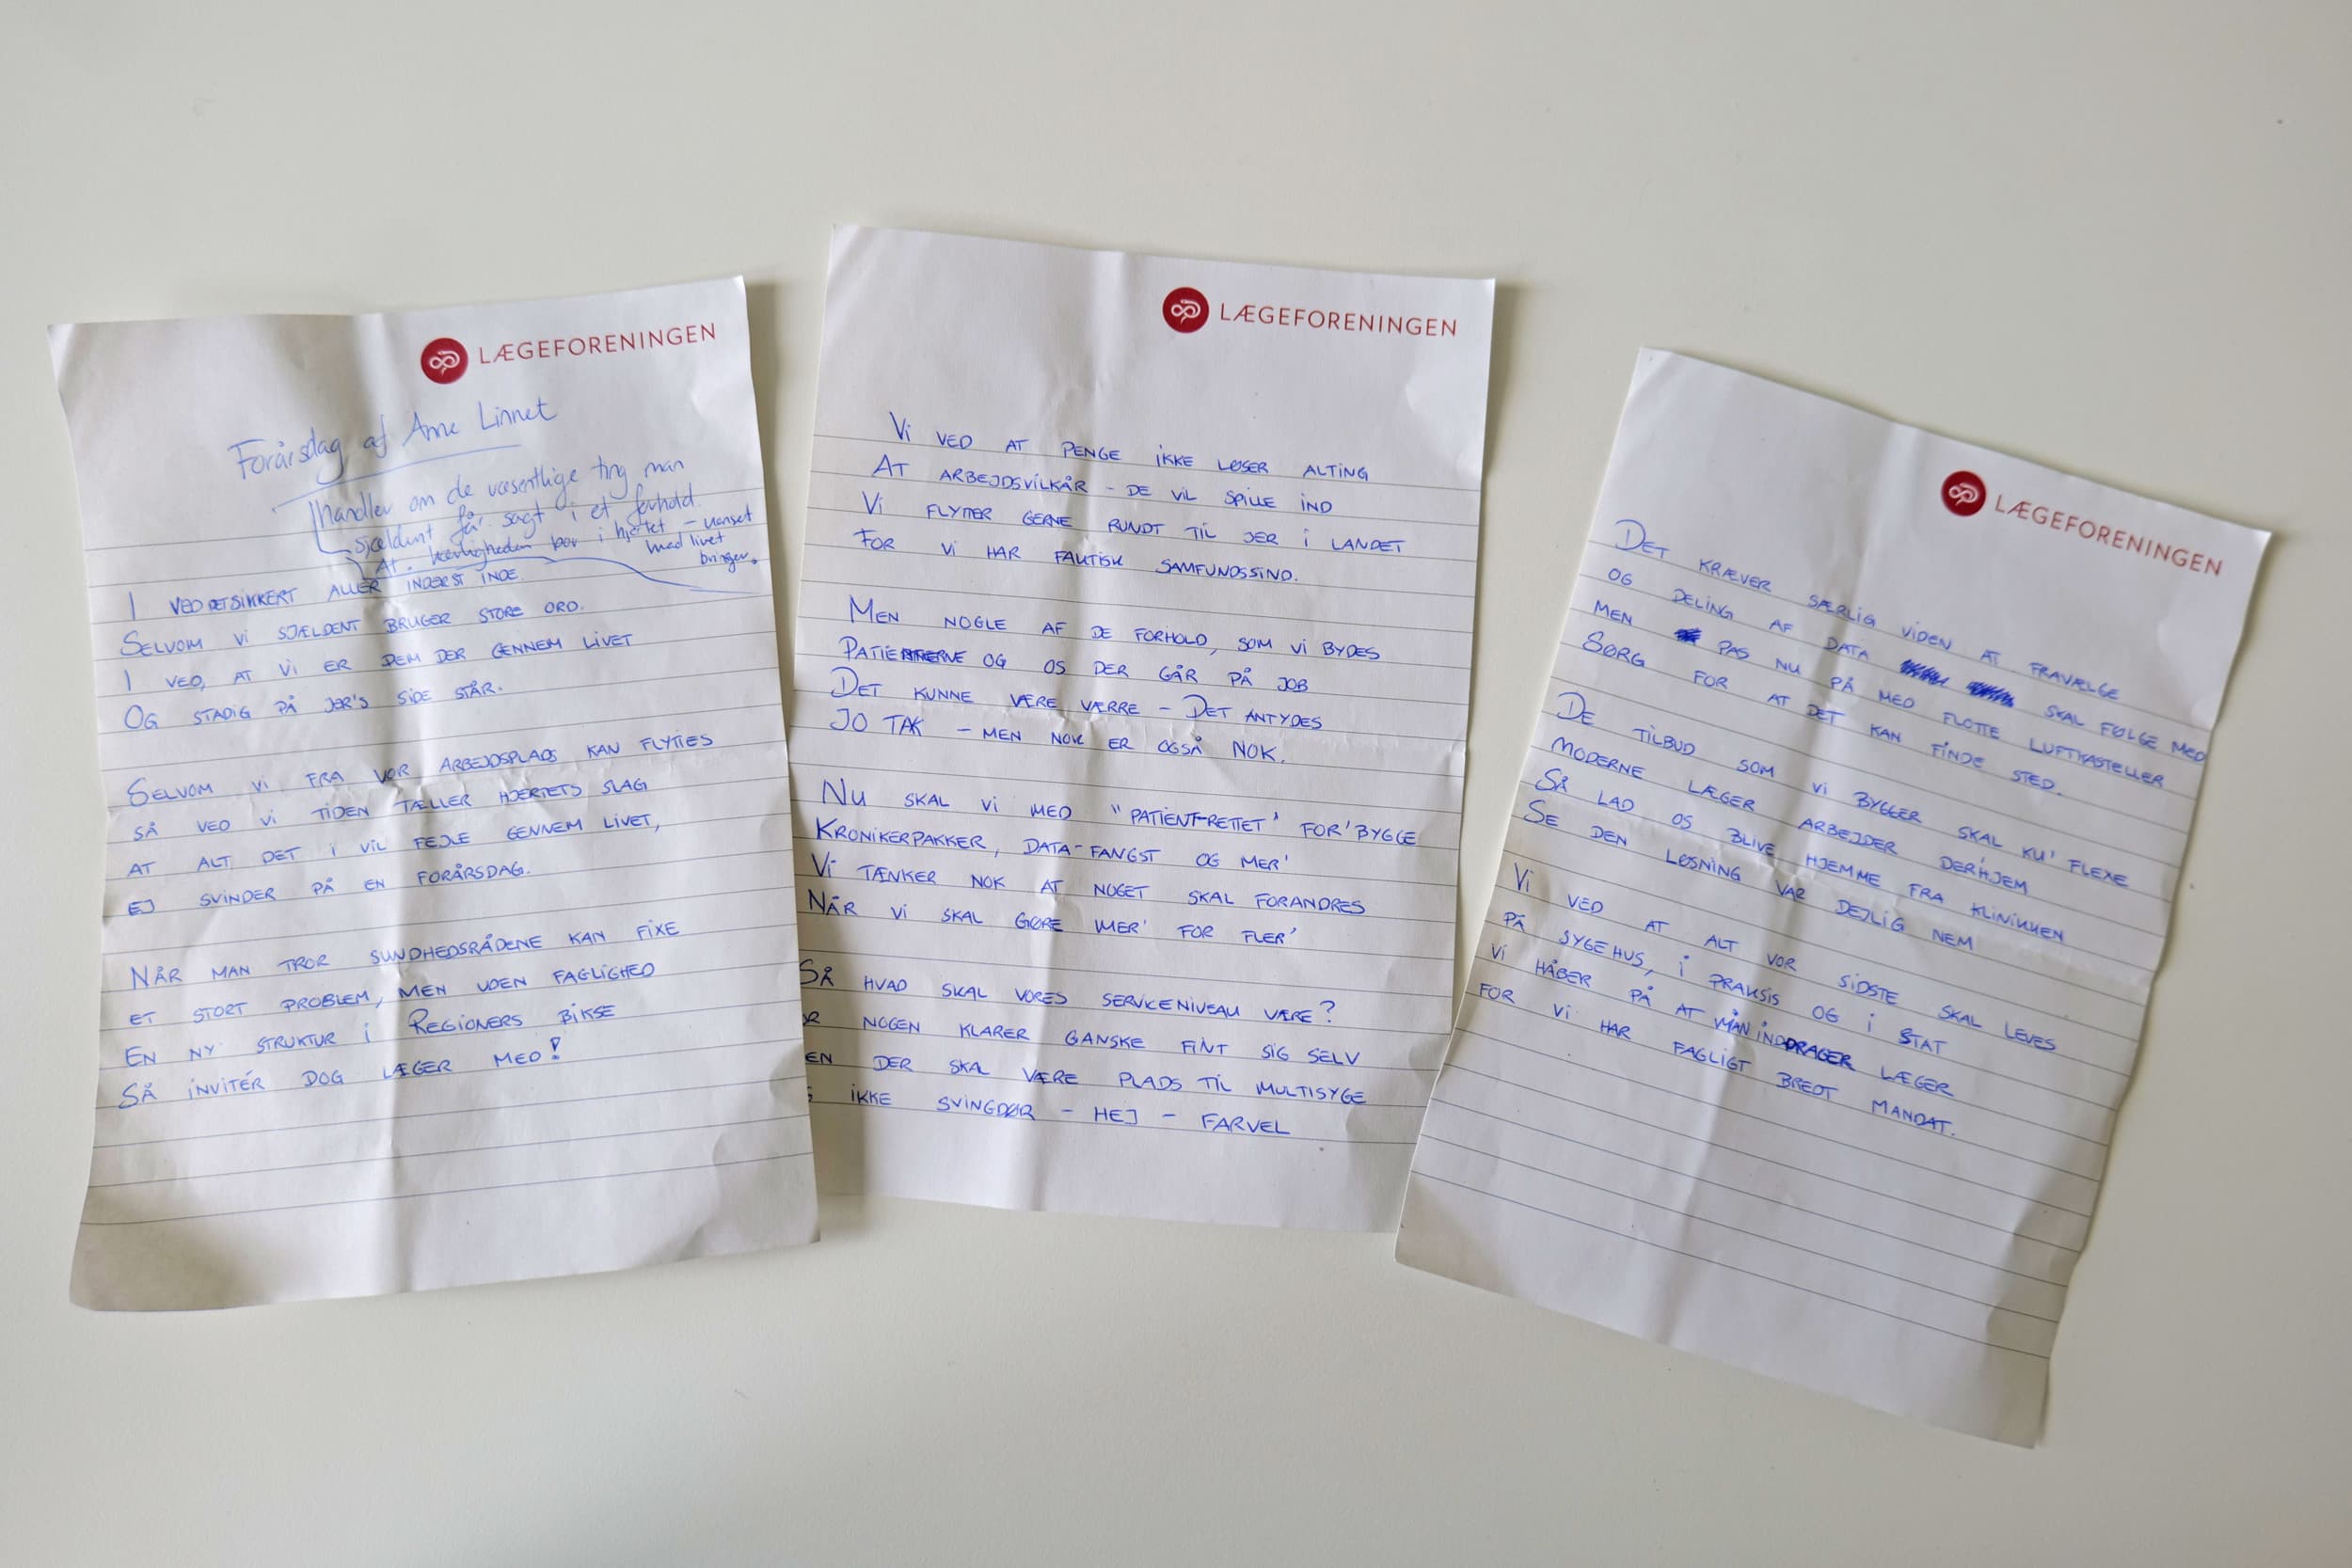 LÆGEFORENINGEN
Forårsdag af Anne Linnet
Handler om de væsentlige ting man
sjældent får sagt i et forhold.
At kærligheden bor i hjertet – uanset
hvad livet
bringer.
I VED DET SIKKERT ALLER INDERST INDE
SELVOM VI SJÆLDENT BRUGER STORE ORD.
I VED, AT VI ER DEM DER GENNEM LIVET
OG STADIG PÅ JER'S SIDE STÅR.
SELVOM VI FRA VOR ARBEJDSPLADS KAN FLYTTES
SÅ VED VI TIDEN TÆLLER HJERTETS SLAG
AT ALT DET I VIL FEJLE GENNEM LIVET,
EJ SVINDER PÅ EN FORÅRSDAG.
NÅR MAN TROR SUNDHEDSRÅDENE KAN FIXE
ET STORT PROBLEM, MEN UDEN FAGLIGHED
EN NY STRUKTUR I REGIONERS BIKSE
SÅ INVITÉR DOG LÆGER MED!
LÆGEFORENINGEN
VI VED AT PENGE IKKE LØSER ALTING
AT ARBEJDSVILKÅR – DE VIL SPILLE IND
VI FLYTTER GERNE RUNDT TIL JER I LANDET
FOR VI HAR FAKTISK SAMFUNDSSIND.
MEN NOGLE AF DE FORHOLD, SOM VI BYDES
PATIENTERNE OG OS DER GÅR PÅ JOB
DET KUNNE VÆRE VÆRRE – DET ANTYDES
JO TAK – MEN NOK ER OGSÅ NOK.
NU SKAL VI MED "PATIENT-RETTET" FOR'BYGGE
KRONIKERPAKKER, DATA-FANGST OG MER'
VI TÆNKER NOK AT NOGET SKAL FORANDRES
NÅR VI SKAL GØRE MER' FOR FLER'
SÅ HVAD SKAL VORES SERVICENIVEAU VÆRE?
R NOGEN KLARER GANSKE FINT SIG SELV
EN DER SKAL VÆRE PLADS TIL MULTISYGE
IKKE SVINGDØR – HEJ – FARVEL
LÆGEFORENINGEN
DET KRÆVER SÆRLIG VIDEN AT FRAVÆLGE
OG DELING AF DATA SKAL FØLGE MED
MEN PAS NU PÅ MED FLOTTE LUFTKASTELLER
SØRG FOR AT DET KAN FINDE STED.
DE TILBUD SOM VI BYGGER SKAL KU' FLEXE
MODERNE LÆGER ARBEJDER DERHJEM
SÅ LAD OS BLIVE HJEMME FRA KLINIKKEN
SE DEN LØSNING VAR DEJLIG NEM
VI VED AT ALT VOR SIDSTE SKAL LEVES
PÅ SYGEHUS, I PRAKSIS OG I STAT
VI HÅBER PÅ AT MAN INDDRAGER LÆGER
FOR VI HAR FAGLIGT BREDT MANDAT.